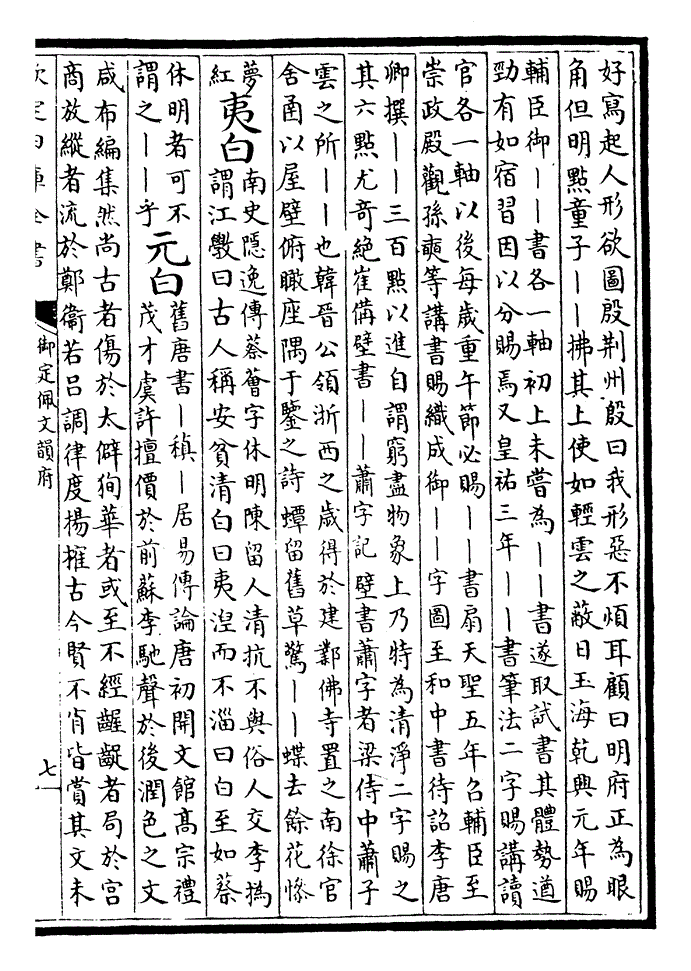 好寫起人形欲圖殷荆州殷曰我形惡不煩耳顧曰明府正為眼
角但明㸃童子丨丨拂其上使如輕雲之蔽日玉海乾興元年賜
輔臣御丨丨書各一軸初上未嘗為丨丨書遂取試書其體勢遒
勁有如宿習因以分賜焉又皇祐三年丨丨書筆法二字賜講讀
官各一軸以後每歲重午節必賜丨丨書扇天聖五年召輔臣至
崇政殿觀孫奭等講書賜織成御丨丨字圖至和中書待詔李唐
卿撰丨丨三百點以進自謂窮盡物象上乃特為清淨二字賜之
其六點尤奇絶崔備壁書丨丨蕭字記壁書蕭字者梁侍中蕭子
雲之所丨丨也韓晉公領浙西之歲得於建鄴佛寺置之南徐官
舍函以屋壁俯瞰座隅于鑒之詩蟫留舊草驚丨丨蝶去餘花慘
夢
紅
夷白
南史隱逸傳蔡薈字休明陳留人清抗不與俗人交李撝
謂江斆曰古人稱安貧清白曰夷涅而不淄曰白至如蔡
休明者可不
謂之丨丨乎
元白
舊唐書丨稹丨居易傳論唐初開文館髙宗禮
茂才虞許擅價於前蘇李馳聲於後潤色之文
咸布編集然尚古者傷於太僻狥華者或至不經齷齪者局於宫
商放縱者流於鄭衞若吕調律度揚搉古今賢不肖皆賞其文未
欽定四庫全書
御定佩文韻府
七